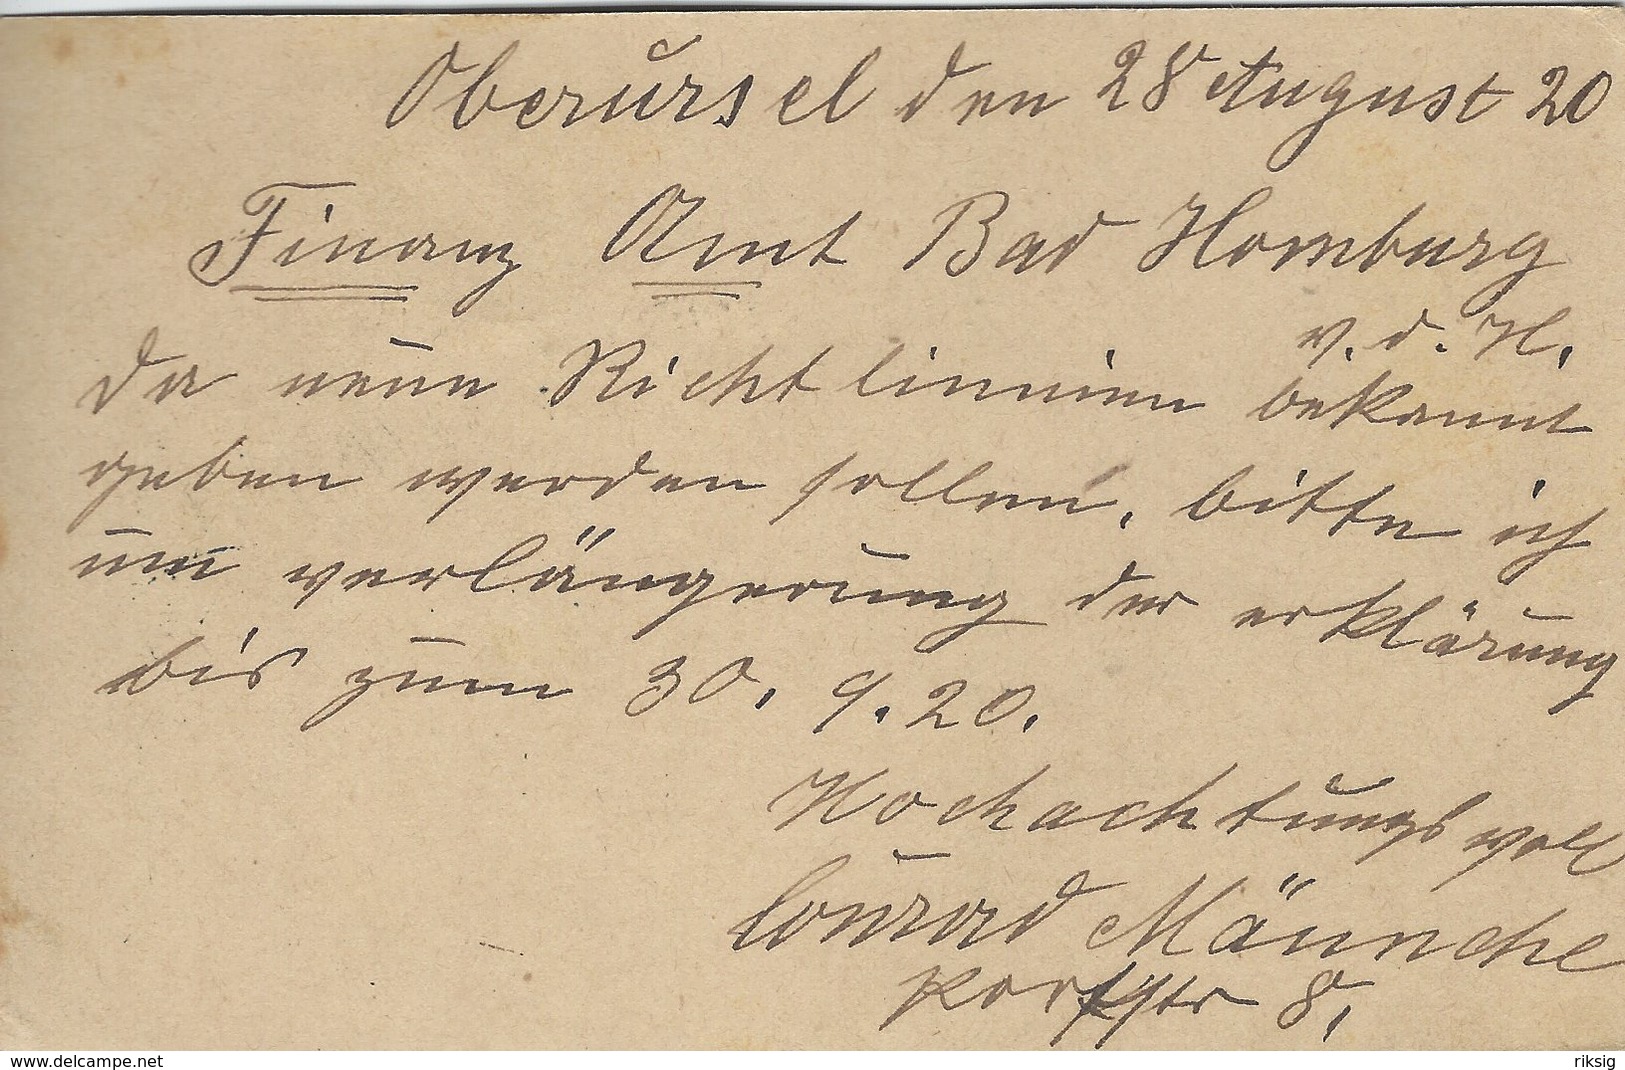 Oberursel den 28 August 20
Finanz Amt Bad Homburg
v. d. H.
da neue Richtlinien bekannt
geben werden sollen, bitte ich
um verlängerung der erklärung
bis zum 30. 9. 20.
Hochachtungsvoll
Conrad Männche
8.
www.delcampe.net
riksig